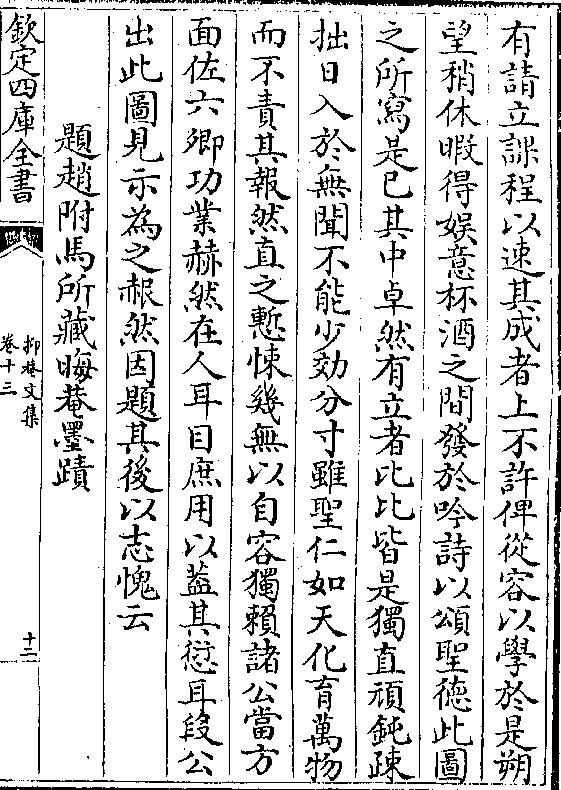 有請立課程以速其成者上不許俾從容以學於是朔
望稍休暇得娱意杯酒之間發於吟詩以頌聖徳此圖
之所寫是已其中卓然有立者比比皆是獨直頑鈍疎
拙日入於無聞不能少効分寸雖聖仁如天化育萬物
而不責其報然直之慙悚幾無以自容獨賴諸公當方
面佐六卿功業赫然在人耳目庶用以葢其愆耳段公
出此圖見示為之赧然因題其後以志愧云
題趙附馬所藏晦菴墨蹟
欽定四庫全書
抑菴文集
卷十三
十二